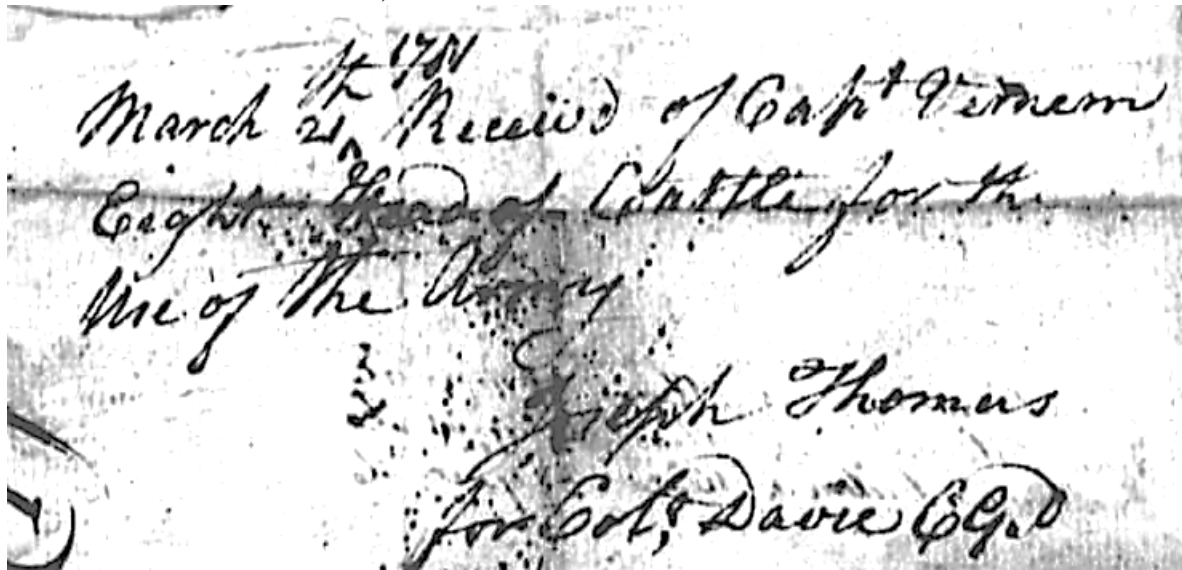 March 21th 1781 Receiv'd of Capt
Eight Head of Cattle for the
Use of the Army
Joseph Thomas
for Colo, Davie CGD